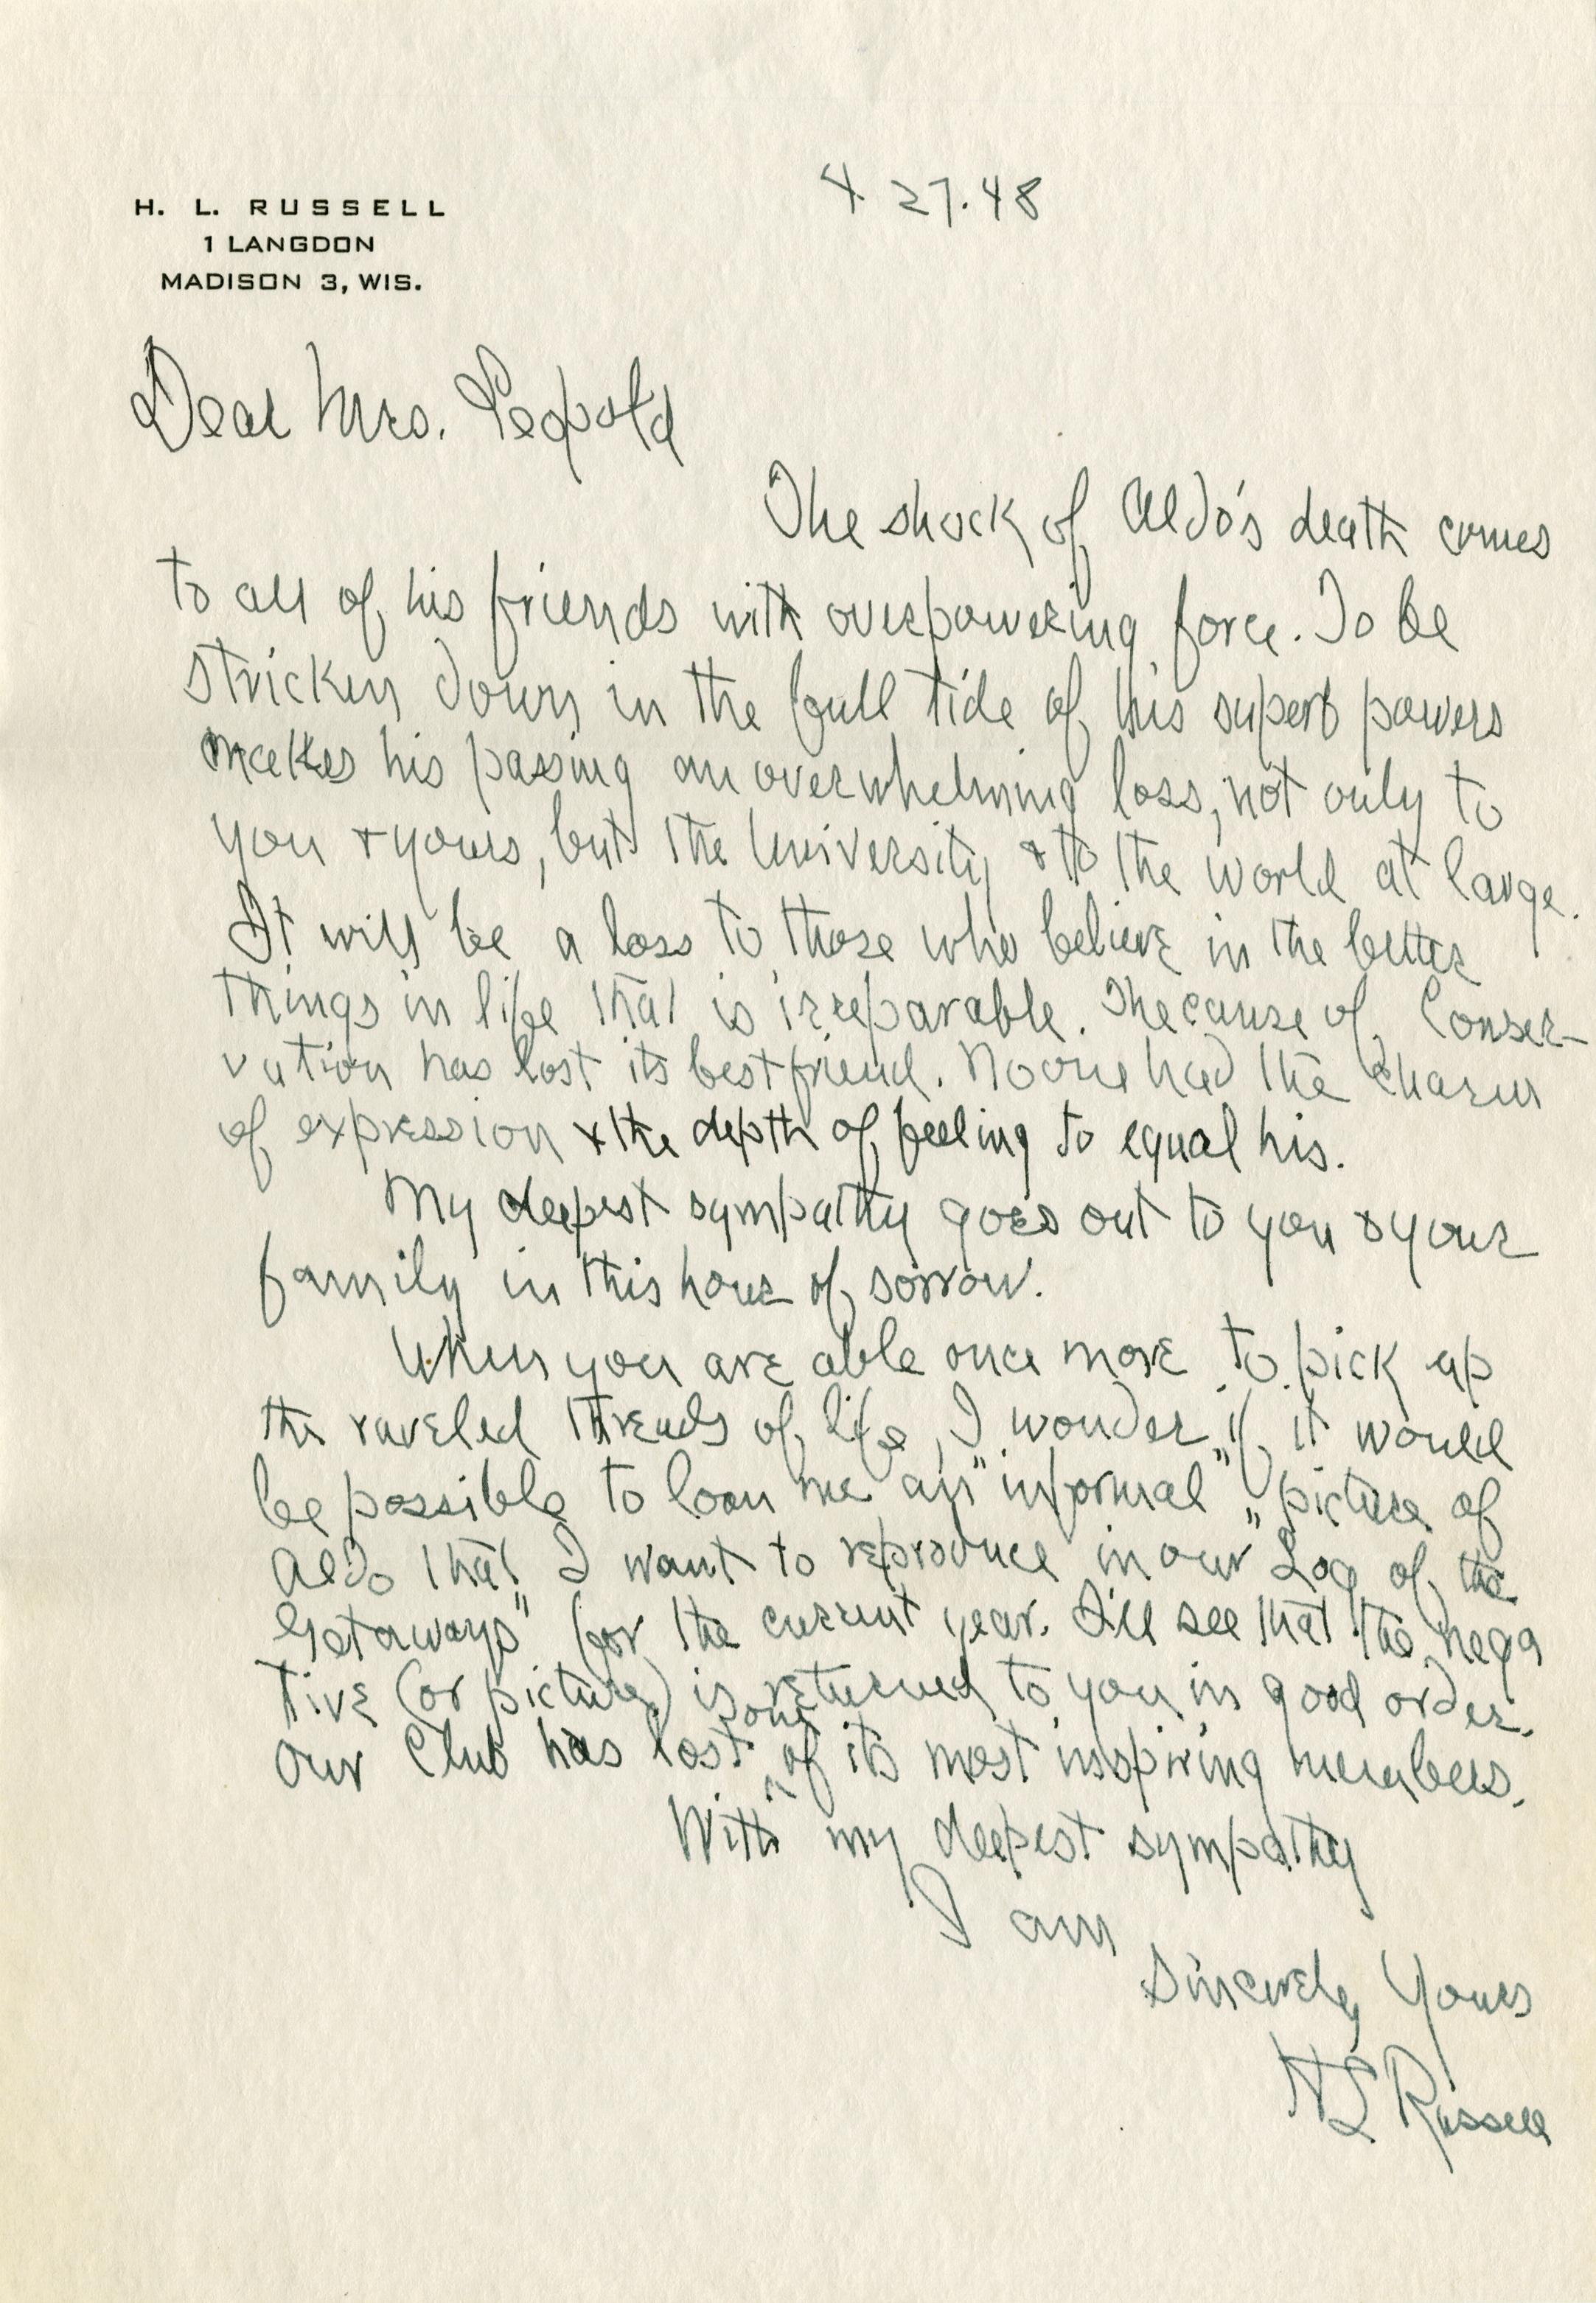 H. L. RUSSELL
1 LANGDON
MADISON 3, WIS.
4 27.48
Dear Mrs. Leopold
The shock of Aldo's death comes
to all of his friends with overpowering force. To be
stricken down in the full tide of his superb powers
makes his passing an overwhelming loss, not only to
you & yours, but the University & to the world at large.
It will be a loss to those who believe in the better
things in life that is irreparable. The cause of Conser-
vation has lost its best friend. No one had the charm
of expression & the depth of feeling to equal his.
My deepest sympathy goes out to you & your
family in this hour of sorrow.
When you are able once more to pick up
the raveled threads of life, I wonder if it would
be possible to loan me an "informal" picture of
Aldo that I want to reproduce in our "Log of the
Getaways" for the current year. I'll see that the nega
tive (or picture) is returned to you in good order.
Our Club has lost one of its most inspiring members.
With my deepest sympathy
I am
Sincerely Yours
H L Russell